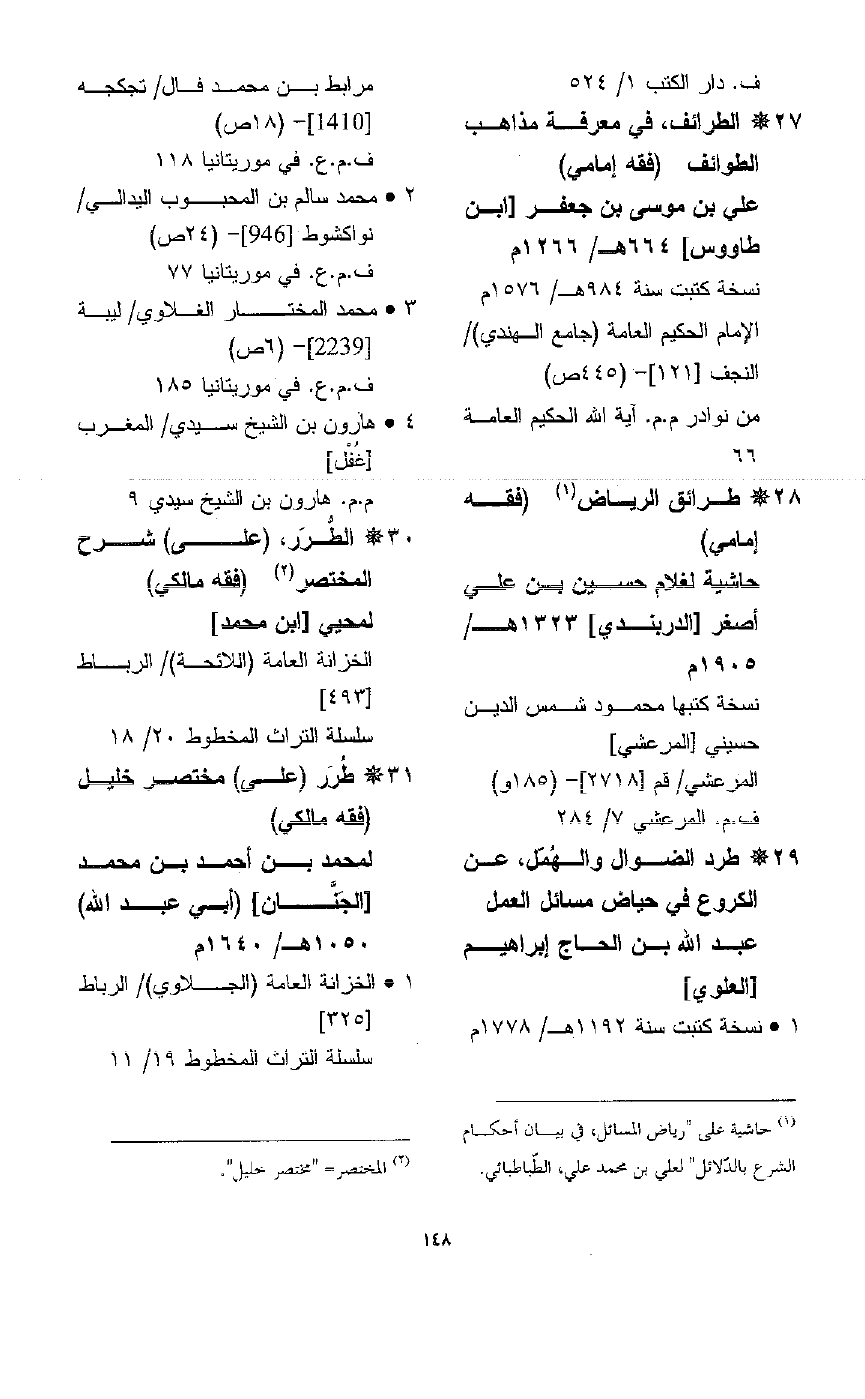 ف. دار الكتب ١/ ٥٢٤
٢٧ ❋ الطرائف، في معرفة مذاهب
الطوائف (فقه إمامي)
علي بن موسى بن جعفر [ابن
طاووس] ٦٦٤هـ/ ١٢٦٦م
نسخة كتبت سنة ٩٨٤هـ/ ١٥٧٦م
الإمام الحكيم العامة (جامع الهندي)/
النجف [١٢١]- (٤٤٥ص)
من نوادر م.م. آية الله الحكيم العامة
٦٦
٢٨ ❋ طرائق الرياض(١) (فقه
إمامي)
حاشية لغلام حسين بن علي
أصغر [الدربندي] ١٣٢٣هـ/
١٩٠٥م
نسخة كتبها محمود شمس الدين
حسيني [المرعشي]
المرعشي/ قم [٢٧١٨]- (١٨٥و)
ف.م. المرعشي ٧/ ٢٨٤
٢٩ ❋ طرد الضوال والهُمّل، عن
الكروع في حياض مسائل العمل
عبد الله بن الحاج إبراهيم
[العلوي]
١ • نسخة كتبت سنة ١١٩٢هـ/ ١٧٧٨م
(١) حاشية على "رياض المسائل، في بيان أحكام
الشرع بالدّلائل" لعلي بن محمد علي، الطّباطبائي.
مرابط بن محمد فال/ تجكجه
[1410]- (١٨ص)
ف.م.ع. في موريتانيا ١١٨
٢ • محمد سالم بن المحبوب اليدالي/
نواكشوط [946]- (٢٤ص)
ف.م.ع. في موريتانيا ٧٧
٣ • محمد المختار الغلاوي/ ليبة
[2239]- (٦ص)
ف.م.ع. في موريتانيا ١٨٥
٤ • هارون بن الشيخ سيدي/ المغرب
[غُفْل]
م.م. هارون بن الشيخ سيدي ٩
٣٠ ❋ الطُّرَر، (على) شرح
المختصر(٢) (فقه مالكي)
لمحيي [ابن محمد]
الخزانة العامة (اللائحة)/ الرباط
[٤٩٣]
سلسلة التراث المخطوط ٢٠/ ١٨
٣١ ❋ طُرَر (على) مختصر خليل
(فقه مالكي)
لمحمد بن أحمد بن محمد
[الجَنَّان] (أبي عبد الله)
١٠٥٠هـ/ ١٦٤٠م
١ • الخزانة العامة (الجلاوي)/ الرباط
[٣٢٥]
سلسلة التراث المخطوط ١٩/ ١١
(٢) المختصر= "مختصر خليل".
١٤٨